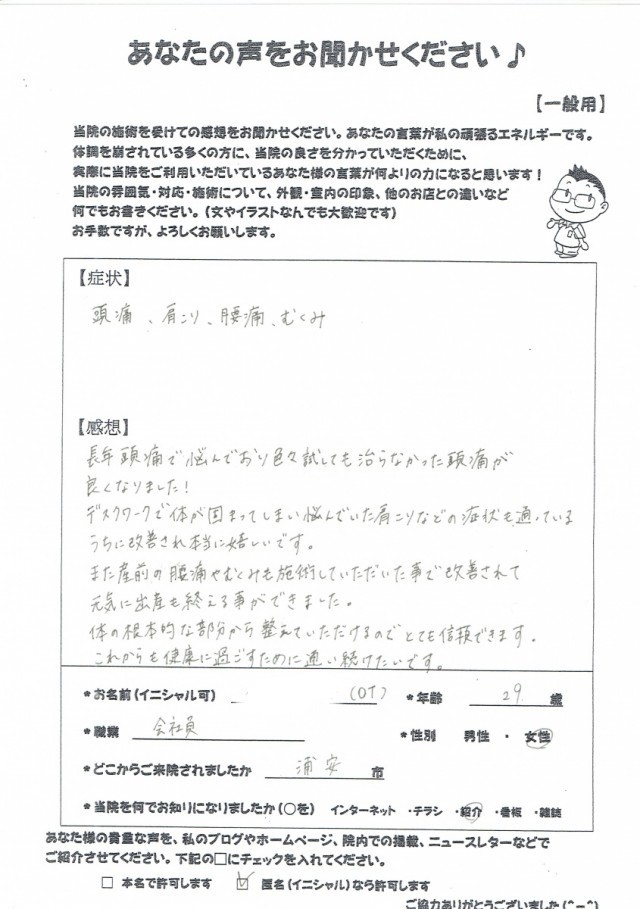 あなたの声をお聞かせください♪
【一般用】
当院の施術を受けての感想をお聞かせください。あなたの言葉が私の頑張るエネルギーです。
体調を崩されている多くの方に、当院の良さを分かっていただくために、
実際に当院をご利用いただいているあなた様の言葉が何よりの力になると思います！
当院の雰囲気・対応・施術について、外観・室内の印象、他のお店との違いなど
何でもお書きください。（文やイラストなんでも大歓迎です）
お手数ですが、よろしくお願いします。
【症状】
頭痛、肩こり、腰痛、むくみ
【感想】
長年頭痛で悩んでおり色々試しても治らなかった頭痛が
良くなりました！
デスクワークで体が固まってしまい悩んでいた肩こりなどの症状も通っている
うちに改善され本当に嬉しいです。
また産前の腰痛やむくみも施術していただいた事で改善されて
元気に出産も終える事ができました。
体の根本的な部分から整えていただけるのでとても信頼できます。
これからも健康に過ごすために通い続けたいです。
*お名前（イニシャル可） (OT) *年齢 29 歳
*職業 会社員 *性別 男性 ・ 女性
*どこからご来院されましたか 浦安 市
*当院を何でお知りになりましたか（○を） インターネット ・チラシ ・紹介 ・看板 ・雑誌
あなた様の貴重な声を、私のブログやホームページ、院内での掲載、ニュースレターなどで
ご紹介させてください。下記の□にチェックを入れてください。
□ 本名で許可します ☑ 匿名（イニシャル）なら許可します
ご協力ありがとうございました(^-^)